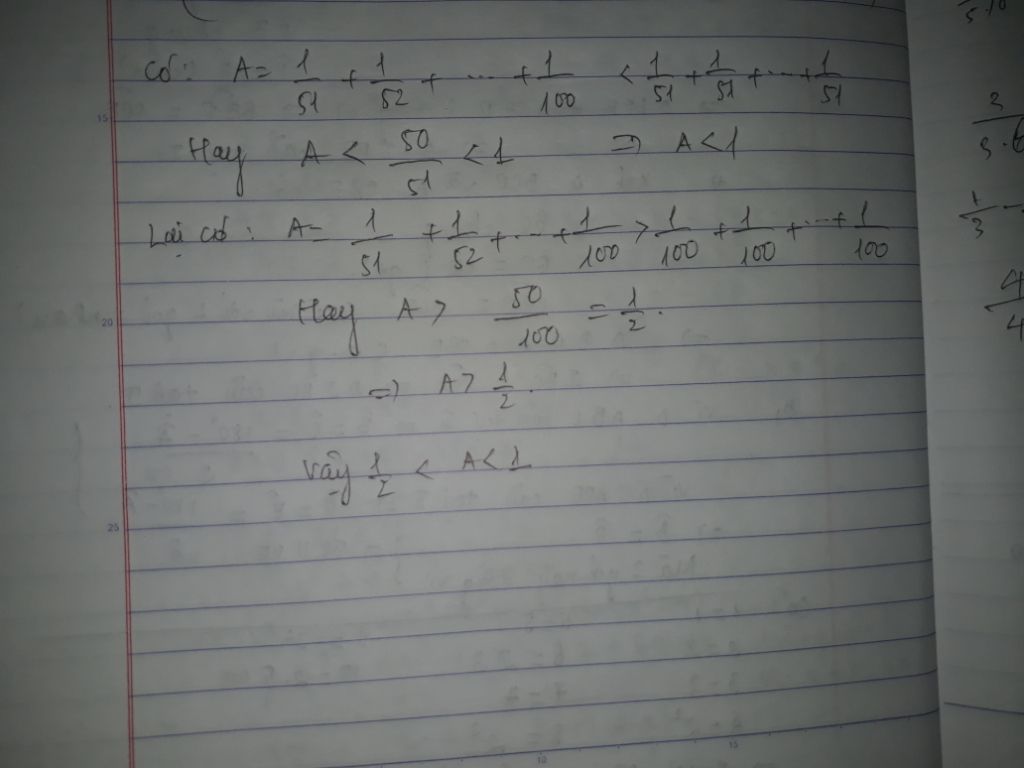 5.10
15
Có: A = 1/51 + 1/52 + ... + 1/100 < 1/51 + 1/51 + ... + 1/51
3
Hay A < 50/51 < 1 => A < 1
Lại có: A = 1/51 + 1/52 + ... + 1/100 > 1/100 + 1/100 + ... + 1/100
1/3 -
20
Hay A > 50/100 = 1/2.
4/4
=> A > 1/2.
Vậy 1/2 < A < 1
25
10
15